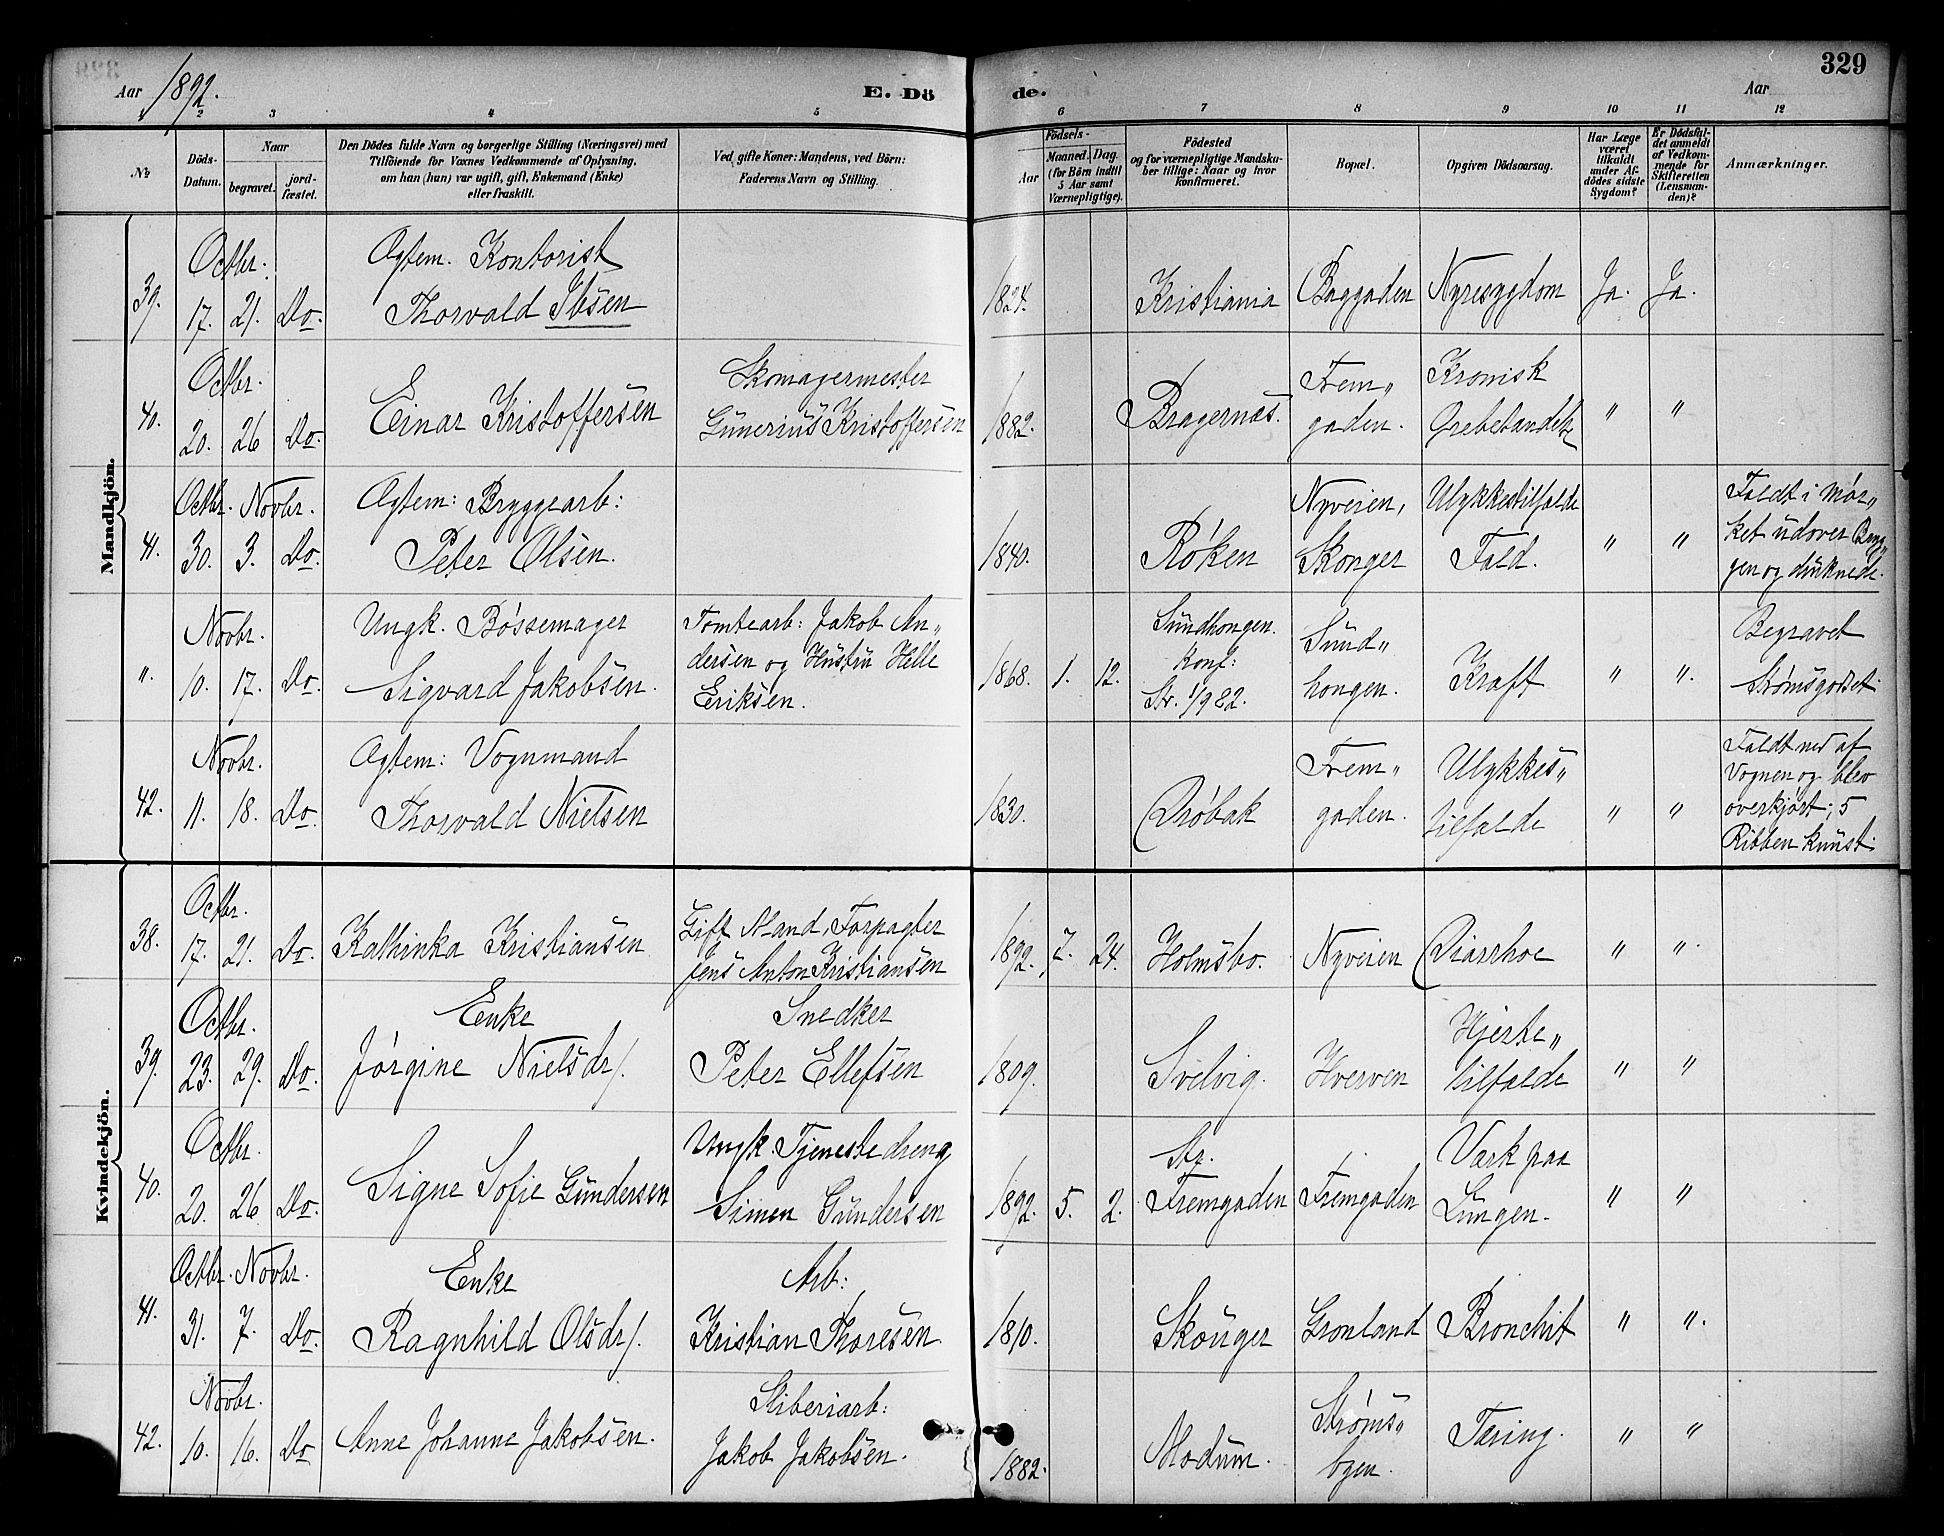 329
Aar 1892.
E. Dö
de.
Aar
2 3 4 5 6 7 8 9 10 11 12
№
Döds-
Datum.
Naar
begravet.
jord-
fæstet.
Den Dödes fulde Navn og borgerlige Stilling (Næringsvei) med
Tilföiende for Voxnes Vedkommende af Oplysning,
om han (hun) var ugift, gift, Enkemand (Enke)
eller fraskilt.
Ved gifte Koner: Mandens, ved Börn:
Faderens Navn og Stilling.
Födsels-
Aar
Maaned. Dag.
(for Börn indtil
5 Aar samt
Værnepligtige).
Födested
og for værnepligtige Mandsku-
ber tillige: Naar og hvor
konfirmeret.
Bopæl.
Opgiven Dödsaarsag.
Har Læge
været
tilkaldt
under Af-
dödes sidste
Sygdom?
Er Dödsfal-
det anmeldt
af Vedkom-
mende for
Skifteretten
(Lensman-
den)?
Anmærkninger.
Mandkjön.
39.
Octbr.
17. 21. Do.
Ogtem. Kontorist
Thorvald Ibsen
1824.
Kristiania
Baggaden
Nyresygdom
Ja. Ja.
40.
Octbr.
20. 26 Do.
Einar Kristoffersen
Skomagermester
Gunerius Kristoffersen
1882.
Bragernæs.
Frem„
gaden.
Kronisk
" "
41.
Octbr. Novbr.
30. 3. Do.
Ogtem: Bryggearb:
Peter Olsen.
1840.
Røken
Nyveien,
Skonger
Ulykkestilfælde
Fald.
" "
Faldt i Mør„
ket udover Bryg„
gen og druknede.
".
Novbr.
10. 17. Do.
Ungk. Bøssemager
Sigvard Jakobsen.
Tomtearb: Jakob An„
dersen og Hustru Helle
Eriksen.
1868. 1. 12.
Sundhongen.
Konf:
Str. 1/9 82.
Sund„
hongen.
Kræft
" ".
Begravet
Strømsgodset.
42.
Novbr.
11. 18. Do.
Ogtem: Vognmand
Thorvald Nielsen
1830.
Drøbak
Frem„
gaden.
Ulykkes„
tilfælde
" "
Faldt ned af
Vognen og blev
overkjørt; 5
Ribben knust.
Kvindekjön.
38.
Octbr.
17. 21. Do.
Kathinka Kristiansen
Gift Mand, Forpagter
Jens Anton Kristiansen
1892. 7. 24.
Holmsbo.
Nyveien
Diarrhoe
" ".
39.
Octbr.
23. 29. Do.
Enke
Jørgine Nielsdr/.
Snedker
Peter Ellefsen
1809.
Svelvig.
Hverven
Hjerte„
tilfælde
" "
40.
Octbr.
20. 26 Do.
Signe Sofie Gundersen
Ungk. Tjenestedreng
Simen Gundersen
1892. 5. 2.
Str.
Fremgaden
Fremgaden
Værk paa
Lungen.
" "
41.
Octbr. Novbr.
31. 7. Do.
Enke
Ragnhild Olsdr/.
Arb:
Kristian Thoresen.
1810.
Skouger
Grønland
Bronchit
" ".
42.
Novbr.
10. 16. Do
Anne Johanne Jakobsen.
Sliberiarb:
Jakob Jakobsen.
1882.
Modum.
Strøms„
byen.
Tæring.
" "